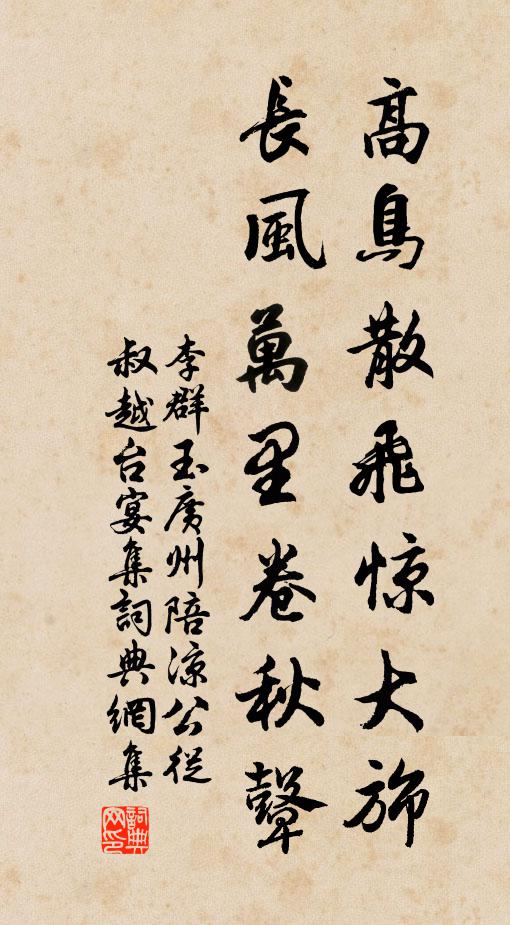 高鳥散飛惊大旆
長風萬里卷秋鼙
李群玉廣州陪涼公從
叔越台宴集詞典網集
詞典
网印